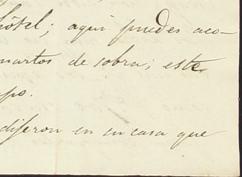 hôtel; aqui puedes aco-
uartos de sobra; este
po.
dijeron en su casa que